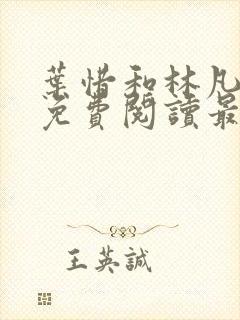 葉惜和林凡
免費閱讀最
王英誠